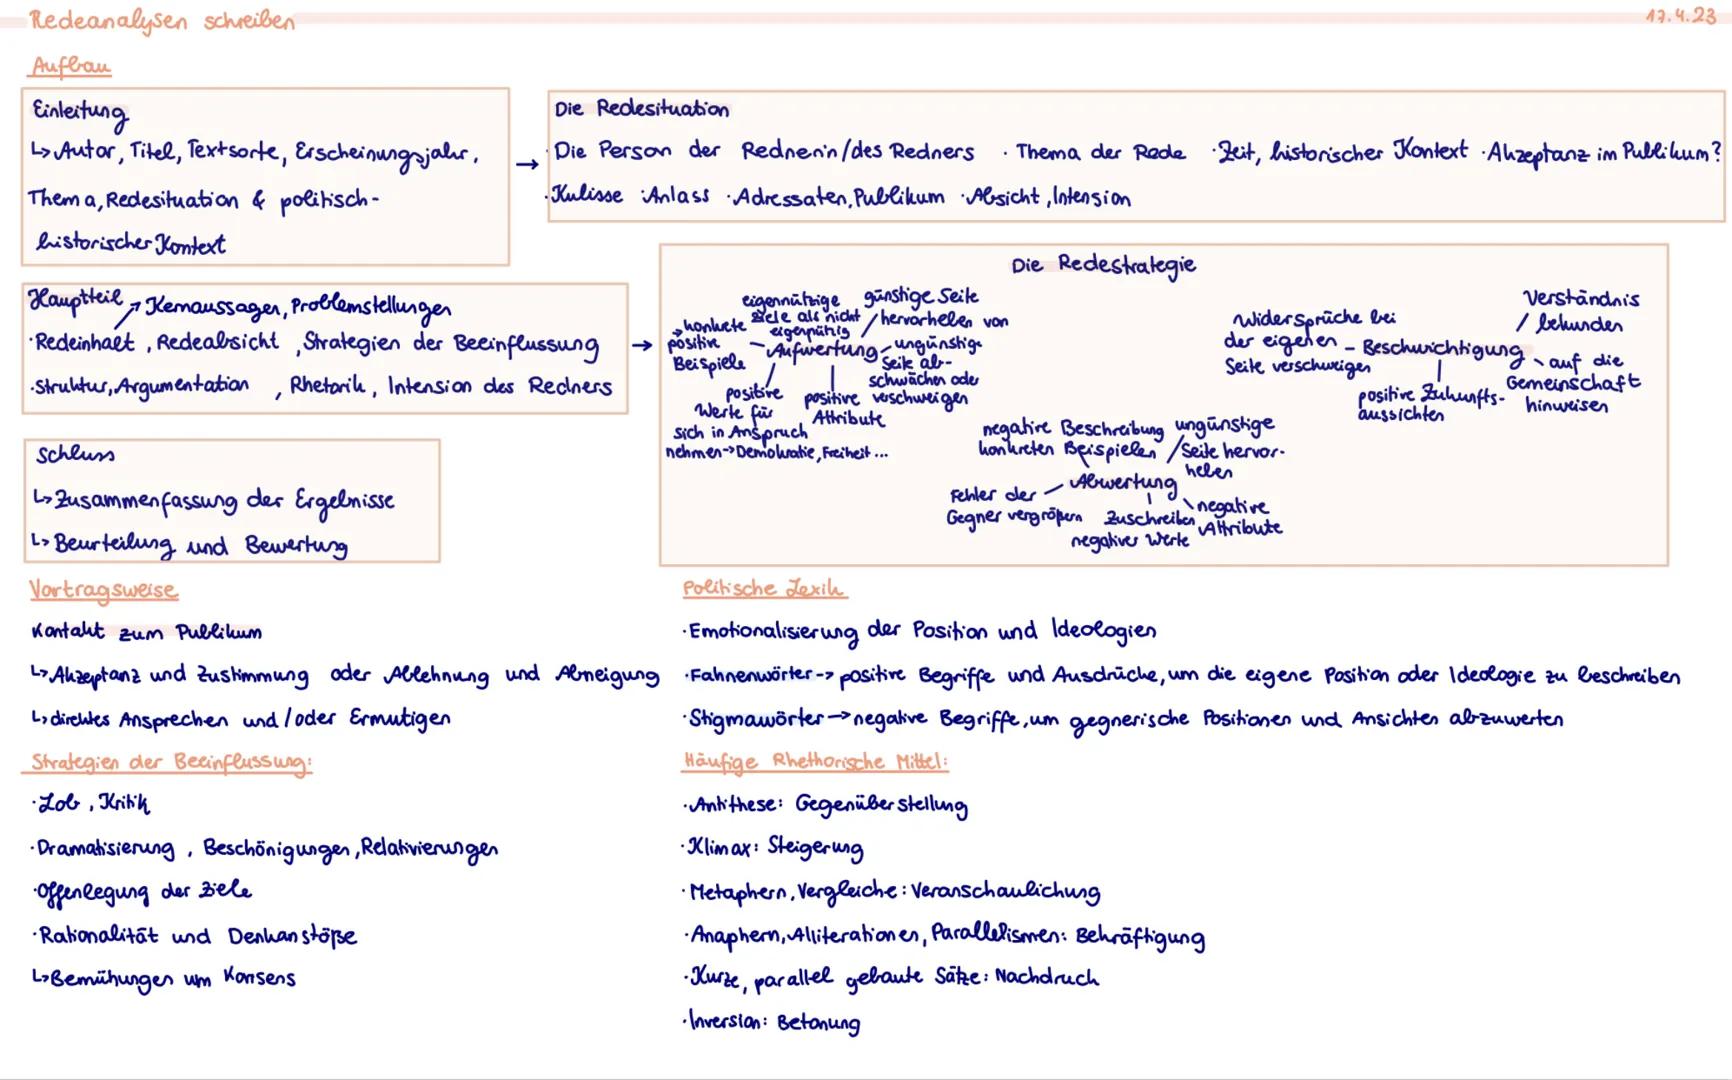 Redeanalysen schreiben
17.4.23
Aufbau
Einleitung
↳ Autor, Titel, Textsorte, Erscheinungsjahr,
Thema, Redesituation & politisch-
historischer Kontext
→
Die Redesituation
· Die Person der Rednerin/des Redners · Thema der Rede · Zeit, historischer Kontext · Akzeptanz im Publikum?
· Kulisse · Anlass · Adressaten, Publikum · Absicht, Intension
Hauptteil
↗ Kernaussagen, Problemstellungen
· Redeinhalt, Redeabsicht, Strategien der Beeinflussung
· Struktur, Argumentation, Rhetorik, Intension des Redners
→
Die Redestrategie
Aufwertung
→ konkrete
positive
Beispiele
eigennützige
Ziele als nicht
eigennützig
günstige Seite
hervorheben von
ungünstige
Seite ab-
schwächen oder
verschweigen
positive
Attribute
positive
Werte für
sich in Anspruch
nehmen -> Demokratie, Freiheit ...
Beschwichtigung
Widersprüche bei
der eigenen
Seite verschweigen
Verständnis
bekunden
auf die
Gemeinschaft
hinweisen
positive Zukunfts-
aussichten
Abwertung
negative Beschreibung
konkreten Beispielen
ungünstige
Seite hervor-
heben
Fehler der
Gegner vergrößern
Zuschreiben
negativer Werte
negative
Attribute
Schluss
↳ Zusammenfassung der Ergebnisse
↳ Beurteilung und Bewertung
Vortragsweise
Kontakt zum Publikum
↳ Akzeptanz und Zustimmung oder Ablehnung und Abneigung
↳ direktes Ansprechen und/oder Ermutigen
Politische Lexik
· Emotionalisierung der Position und Ideologien
· Fahnenwörter -> positive Begriffe und Ausdrücke, um die eigene Position oder Ideologie zu beschreiben
· Stigmawörter → negative Begriffe, um gegnerische Positionen und Ansichten abzuwerten
Strategien der Beeinflussung:
· Lob, Kritik
· Dramatisierung, Beschönigungen, Relativierungen
· Offenlegung der Ziele
· Rationalität und Denkanstöße
↳ Bemühungen um Konsens
Häufige Rhethorische Mittel:
· Antithese: Gegenüberstellung
· Klimax: Steigerung
· Metaphern, Vergleiche: Veranschaulichung
· Anaphern, Alliterationen, Parallelismen: Bekräftigung
· Kurze, parallel gebaute Sätze: Nachdruck
· Inversion: Betonung